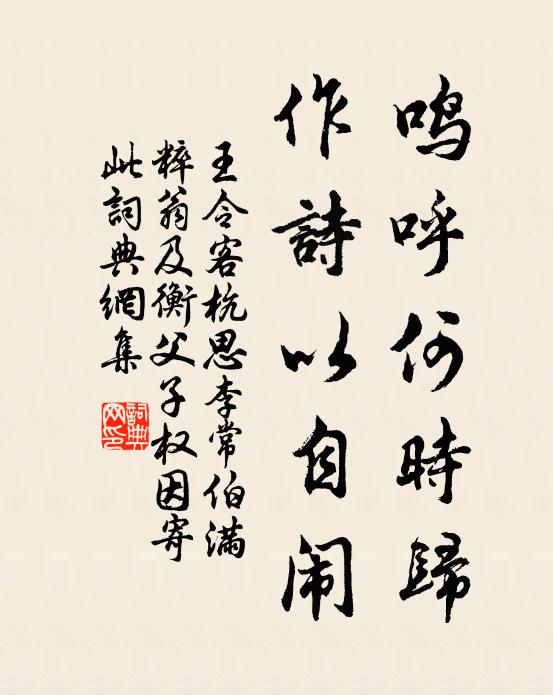 鸣呼何時歸
作詩以自闹
王令客杭思李常伯满
粹翁及衡父子权因寄
此詞典網集
詞典
网印